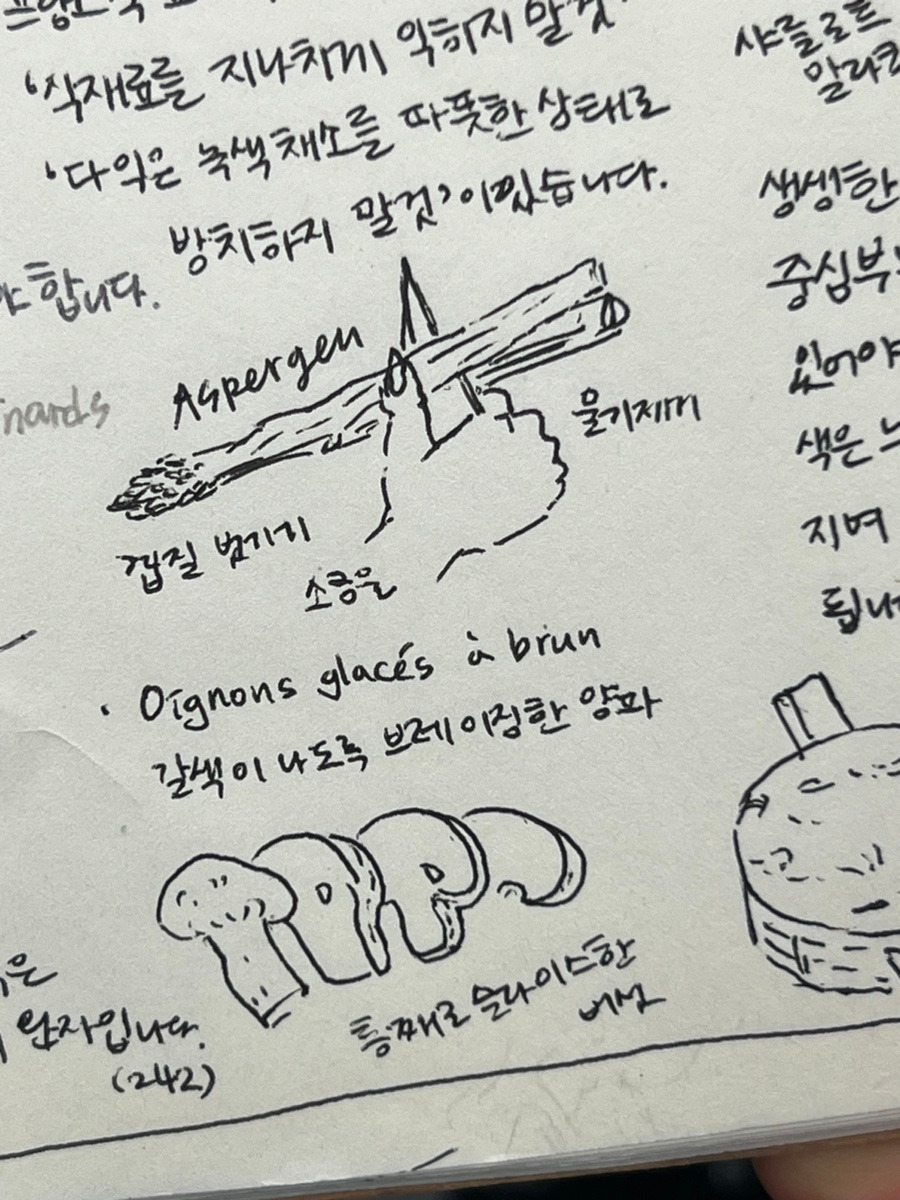 '식재료를 지나치게 익히지 말것'
'다익은 녹색채소를 따뜻한 상태로
방치하지 말것'이있습니다.
합니다.
Aspergen
물기제거
껍질 벗기기
· Oignons glacés à brun
갈색이 나도록 브레이징한 양파
통째로 슬라이스한
버섯
완자입니다.
(242)
샤를로트
생생한
중심부
있어야
색은
지며
됩니